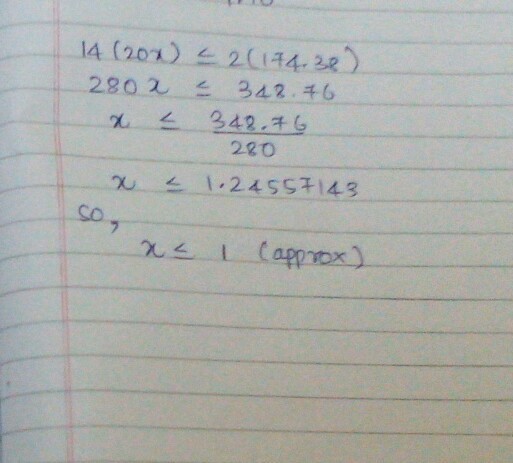 14 (20x) ≤ 2(174.38)
280 x ≤ 348.76
x ≤ 348.76
280
x ≤ 1.24557143
so,
x ≤ 1 (approx)